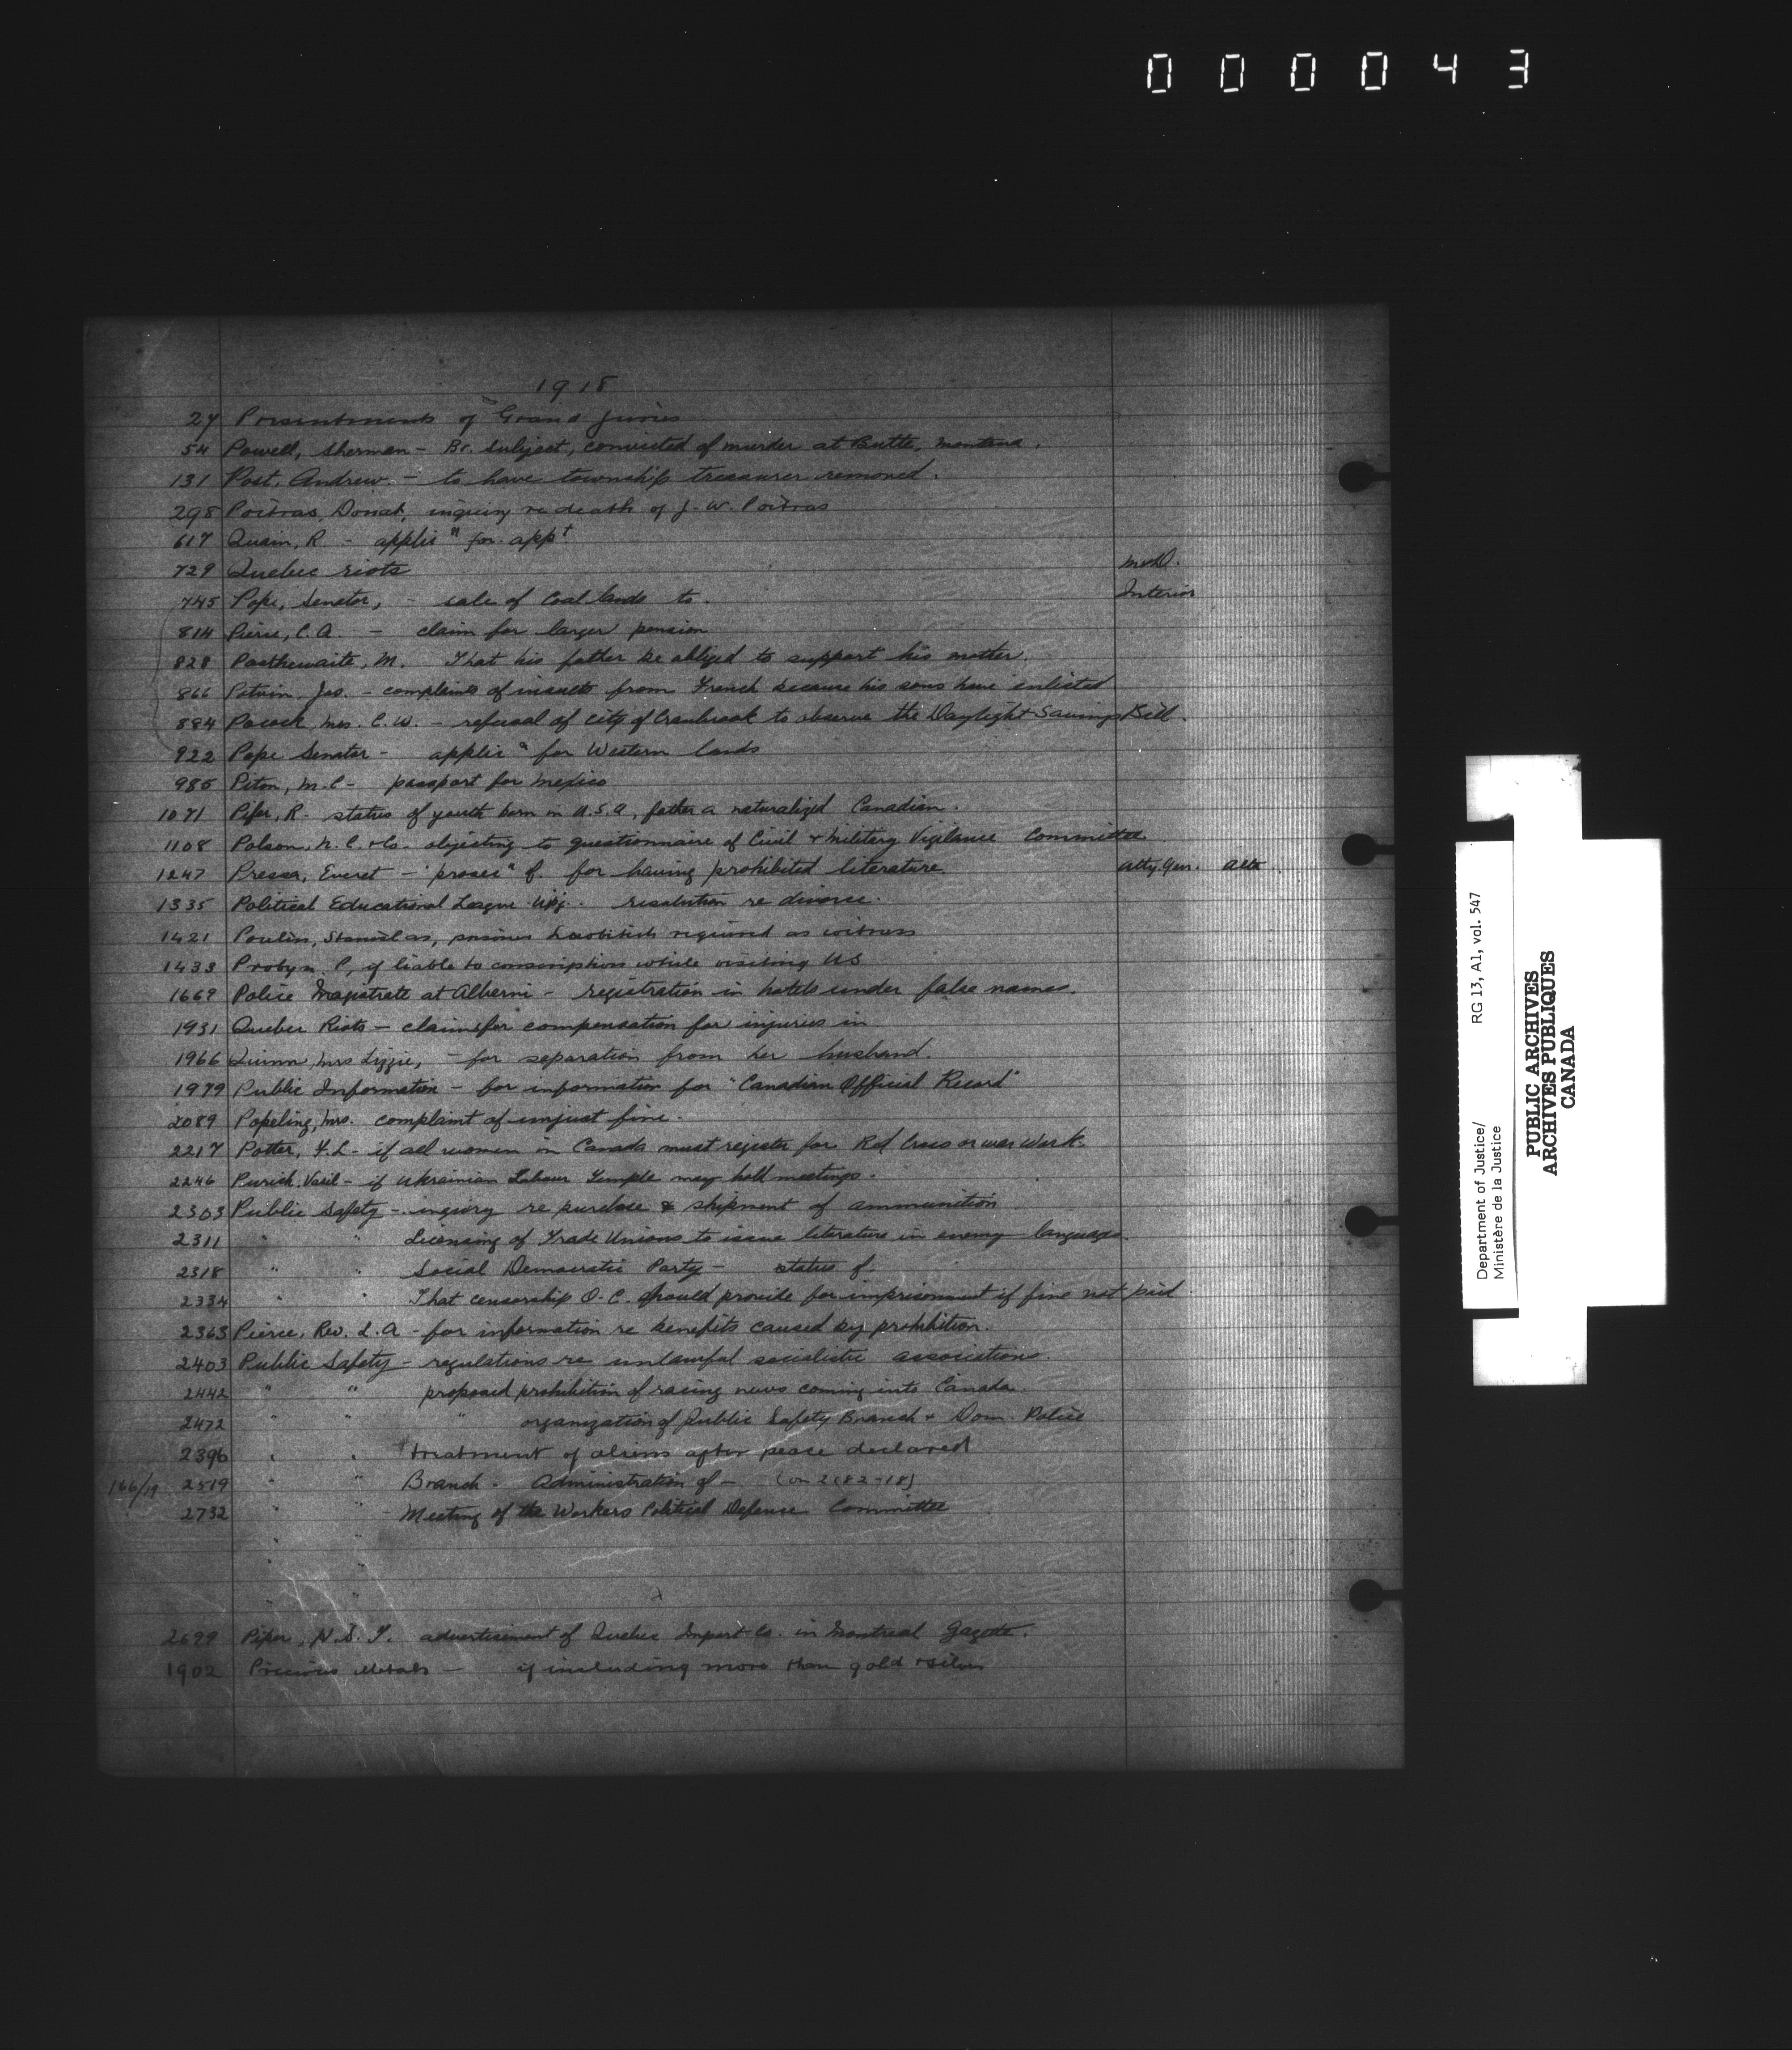 000043
1918
27 Presentments of Grand Juries
54 Powell, Sherman - Br. subject, convicted of murder at Butte, Montana.
131 Post, Andrew - to have township treasurer removed.
298 Poitras, Donat, inquiry re death of J. W. Poitras
617 Quain, R. - applic" for app't
729 Quebec riots
745 Pope, Senator, - sale of Coal lands to. Interior
814 Pierce, C. A. - claim for larger pension
828 Posthewaite, M. That his father be obliged to support his mother.
866 Potvin, Jas. - complains of insults from French because his sons have enlisted
884 Pocock, Mrs. C. W. - refusal of city of Cranbrook to observe the Daylight Savings Bill.
922 Pope Senator - applic" for Western lands
985 Piton, M. C - passport for Mexico
1071 Pifer, R. status of youth born in U.S.A, father a naturalized Canadian.
1108 Polson, N. C. & Co. objecting to questionnaire of Civil & Military Vigilance Committee.
1247 Presser, Everet - prosec" of for having prohibited literature. Atty. Gen. Alta
1335 Political Educational League Wpg. resolution re divorce.
1421 Poulin, Stanislas, prisoner required as witness
1433 Probyn, P, if liable to conscription while visiting US
1669 Police Magistrate at Alberni - registration in hotels under false names.
1931 Quebec Riots - claims for compensation for injuries in
1966 Quinn, Mrs Lizzie, - for separation from her husband.
1979 Public Information - for information for "Canadian Official Record"
2089 Popeling, Mrs. complaint of unjust fine.
2217 Potter, F. L - if all women in Canada must register for Red Cross or war work.
2246 Purich, Vasil - if Ukrainian Labour Temple may hold meetings.
2303 Public Safety - inquiry re purchase & shipment of ammunition
2311 " " Licensing of Trade Unions to issue literature in enemy languages.
2318 " " Social Democratic Party - status of.
2334 " " That censorship O. C. should provide for imprisonment if fine not paid.
2363 Pierce, Rev. L. A - for information re benefits caused by prohibition.
2403 Public Safety - regulations re unlawful socialistic associations.
2442 " " proposed prohibition of racing news coming into Canada
2472 " " " organization of Public Safety Branch & Dom. Police
2396 " " treatment of aliens after peace declared
166/19 2519 " " Branch - Administration of - (on 2182-18)
2732 " " - Meeting of the Workers Political Defense Committee
" "
" "
2699 Piper, N. S. F. advertisement of Quebec Import Co. in Montreal Gazette.
1902 Precious Metals - if including more than gold & silver
Department of Justice/ RG 13, A1, vol. 547
Ministère de la Justice
PUBLIC ARCHIVES
ARCHIVES PUBLIQUES
CANADA